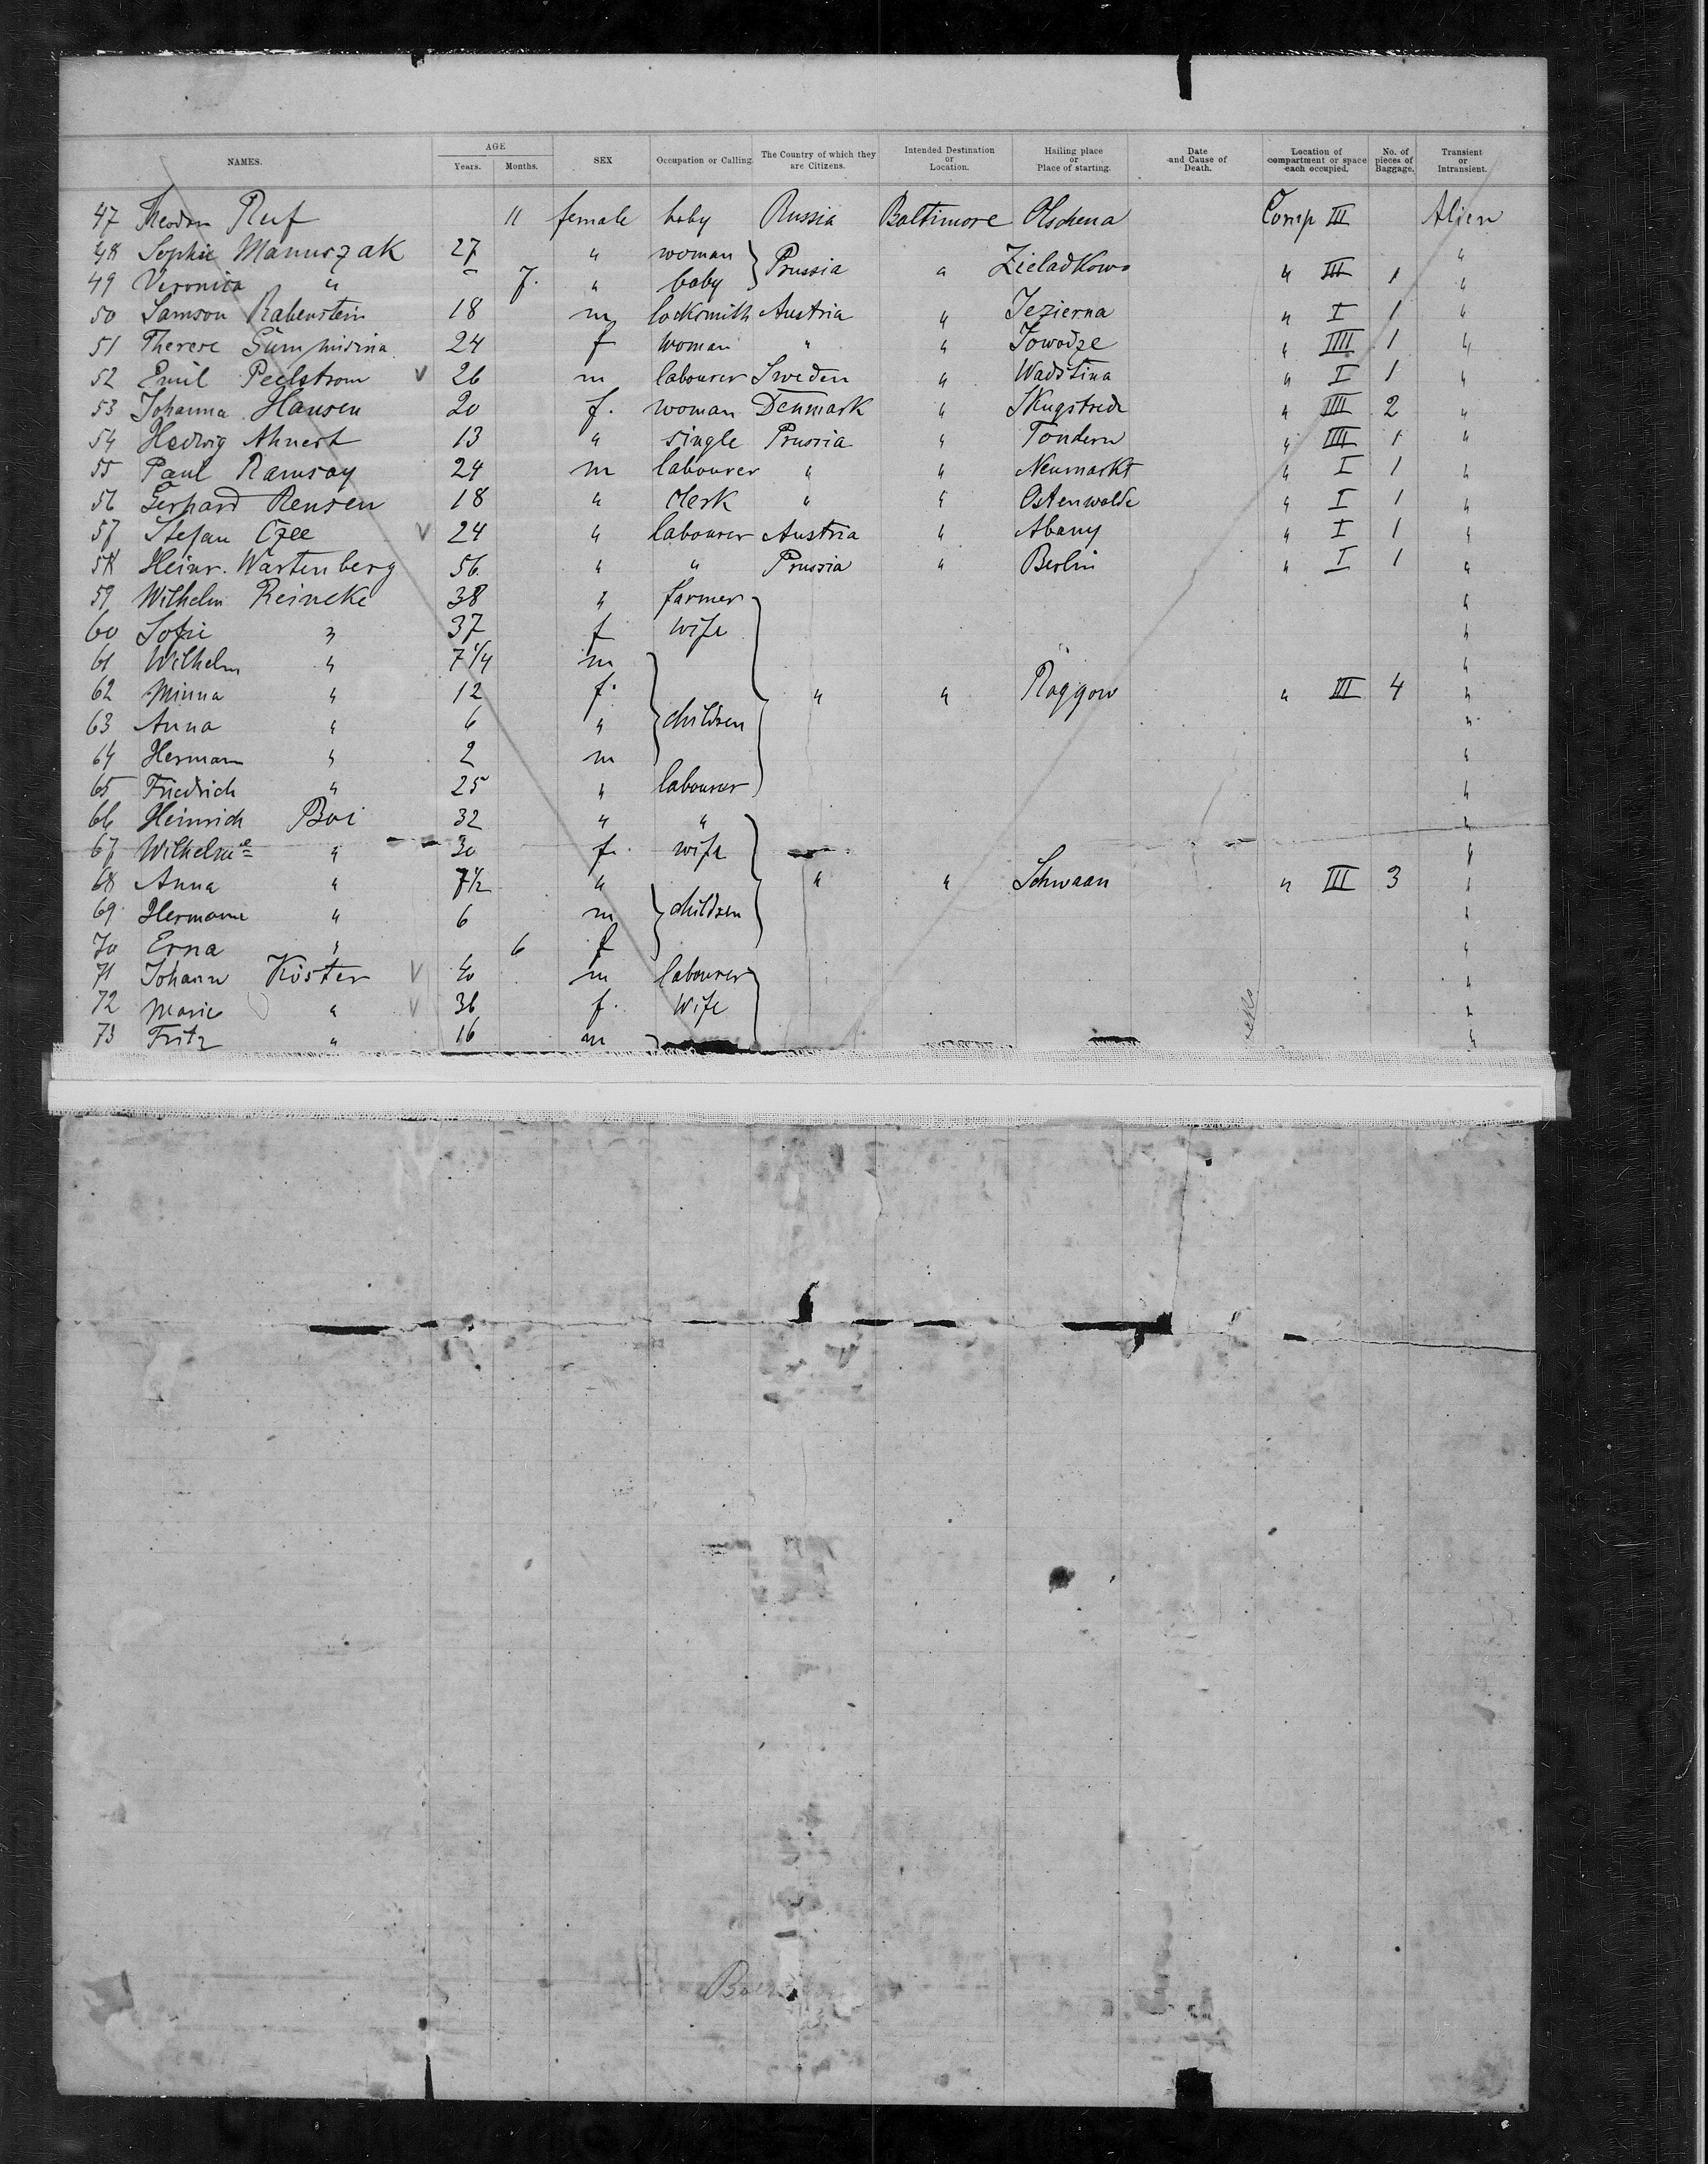 NAMES. AGE Years. Months. SEX Occupation or Calling. The Country of which they are Citizens. Intended Destination or Location. Hailing place or Place of starting. Date and Cause of Death. Location of compartment or space each occupied. No. of pieces of Baggage. Transient or Intransient.
47 Theodor Ruf 11 female baby Russia Baltimore Olschena Comp III Alien
48 Sophie Manuszak 27 " woman Prussia " Zieladkowo " III 1 "
49 Veronica " 7. " baby "
50 Samson Rabenstein 18 m locksmith Austria " Jezierna " I 1 "
51 Therese 24 f woman " " Jowodze " IIII 1 "
52 Emil Peelstrom V 26 m labourer Sweden " Wadstina " I 1 "
53 Johanna Hansen 20 f. woman Denmark " " IIII 2 "
54 Hedwig Ahnert 13 " single Prussia " Tondern " IIII 1 "
55 Paul Ramsay 24 m labourer " " Neumarkt " I 1 "
56 Gerhard Rensen 18 " clerk " " Ostenwalde " I 1 "
57 Stefan Czee V 24 " labourer Austria " Abany " I 1 "
58 Heinr. Wartenberg 56 " " Prussia " Berlin " I 1 "
59 Wilhelm Reineke 38 " farmer "
60 Sofie " 37 f wife "
61 Wilhelm " 7 1/4 m "
62 Minna " 12 f. " " Roggow " III 4 "
63 Anna " 6 " children "
64 Hermann " 2 m "
65 Friedrich " 25 " labourer "
66 Heinrich Boi 32 " " "
67 Wilhelmie " 30 f. wife "
68 Anna " 7 1/2 " " " Schwaan " III 3 "
69 Hermann " 6 m children "
70 Erna " 6 f "
71 Johann Köster V 40 m labourer "
72 Marie " V 36 f. wife "
73 Fritz " 16 m "